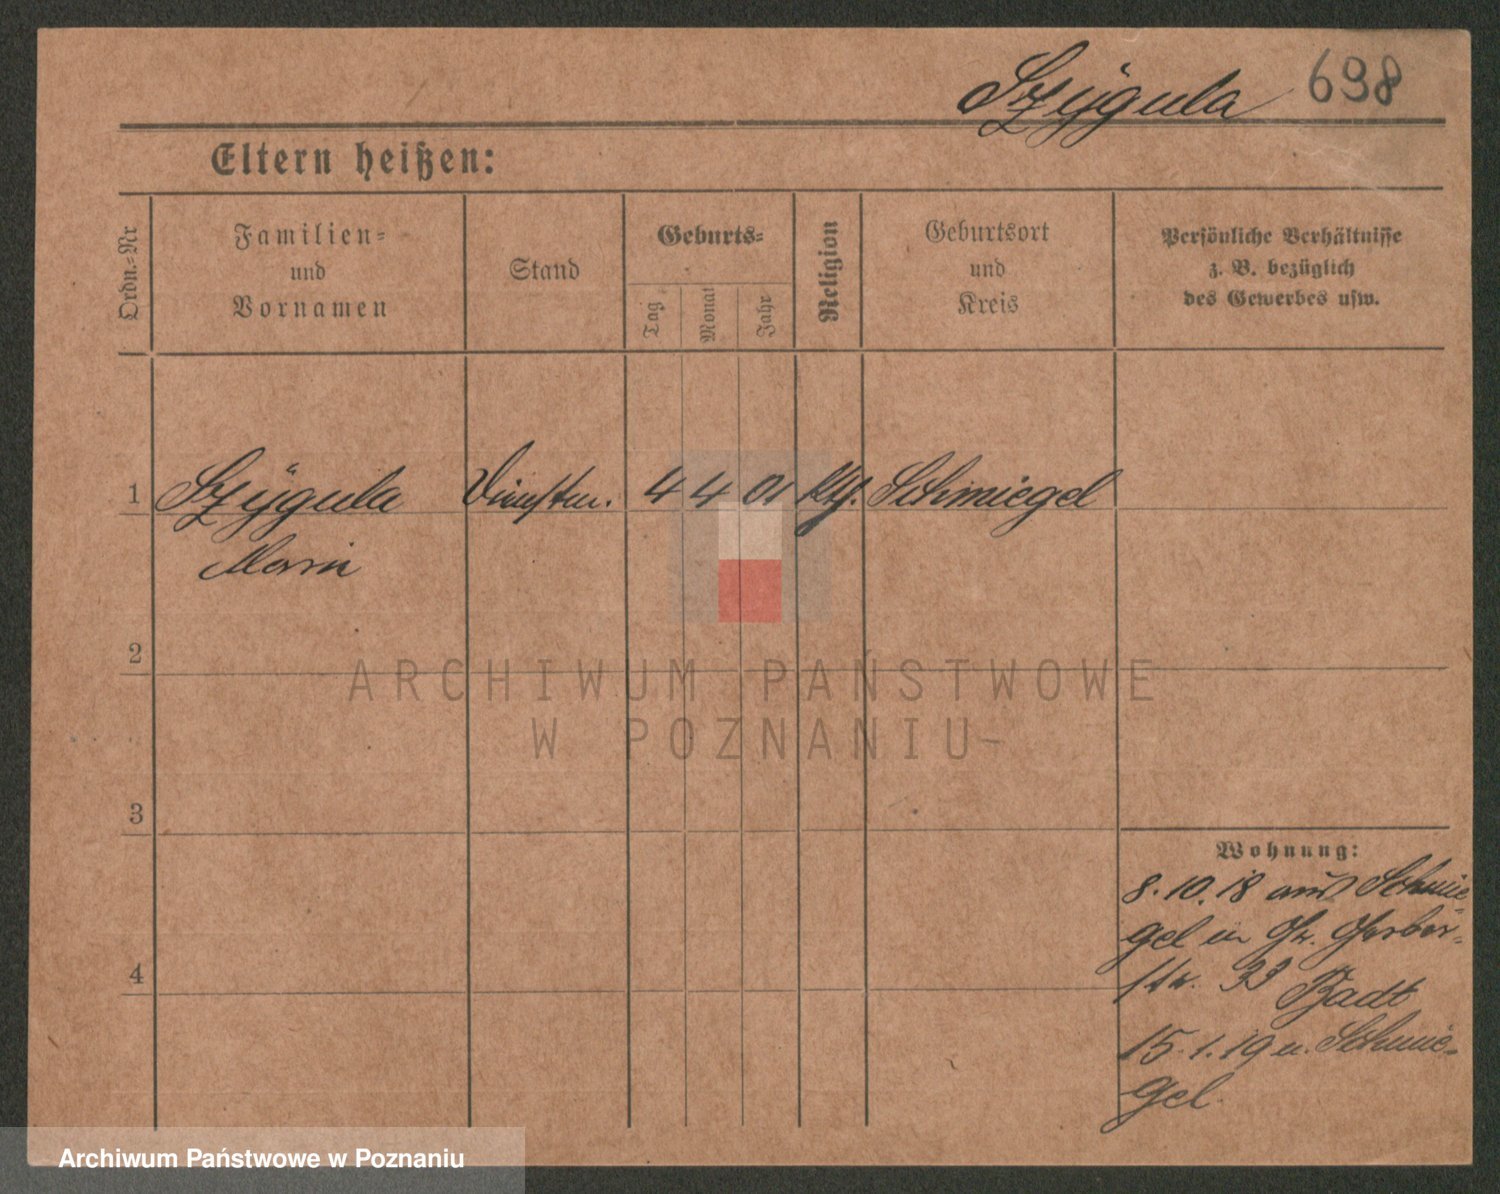 Szÿgula 698
Eltern heißen:
Ordn.-Nr
Familien-
und
Vornamen
Stand
Geburts-
Tag
Monat
Jahr
Religion
Geburtsort
und
Kreis
Persönliche Verhältnisse
z. B. bezüglich
des Gewerbes usw.
1 Szÿgula Dienstm. 4 4 01 kth. Schmiegel
Marie
2
3
4
Wohnung:
8.10.18 aus Schmie-
gel in Gr. Gerber-
str. 33 Badt
15.1.19 n. Schmie-
gel.
ARCHIWUM PAŃSTWOWE
W POZNANIU
Archiwum Państwowe w Poznaniu